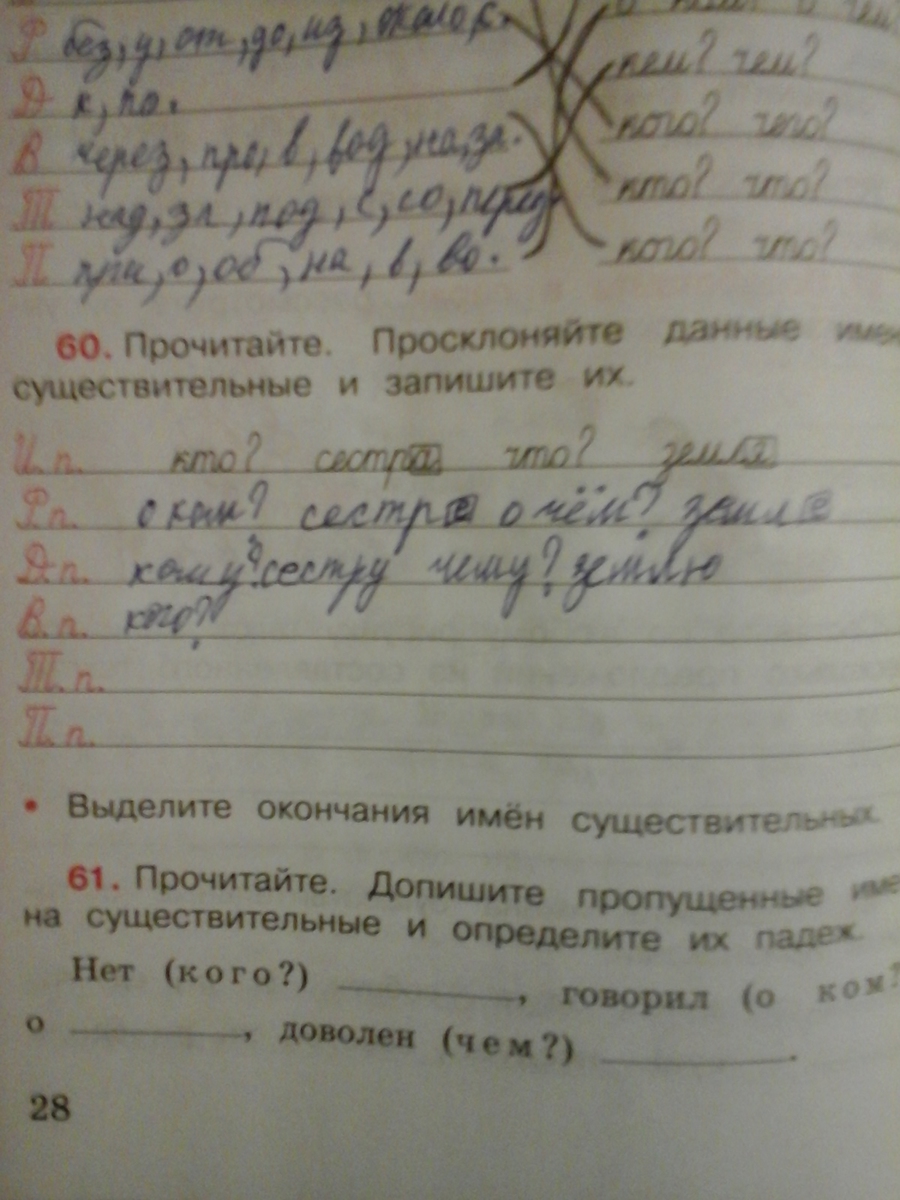 о чём?
Р без, у, от, до, из, около, с.
кем? чем?
Д к, по.
кого? чего?
В через, про, в, под, на, за.
кто? что?
Т над, за, под, с, со, перед.
кого? что?
П при, о, об, на, в, во.
60. Прочитайте. Просклоняйте данные имен
существительные и запишите их.
И. п. кто? сестра что? земля
Р. п. о ком? сестре о чём? земле
Д. п. кому? сестру чему? землю
В. п. кого?
Т. п.
П. п.
• Выделите окончания имён существительных.
61. Прочитайте. Допишите пропущенные име
на существительные и определите их падеж.
Нет (кого?) ________, говорил (о ком?
о ________, доволен (чем?) ________.
28